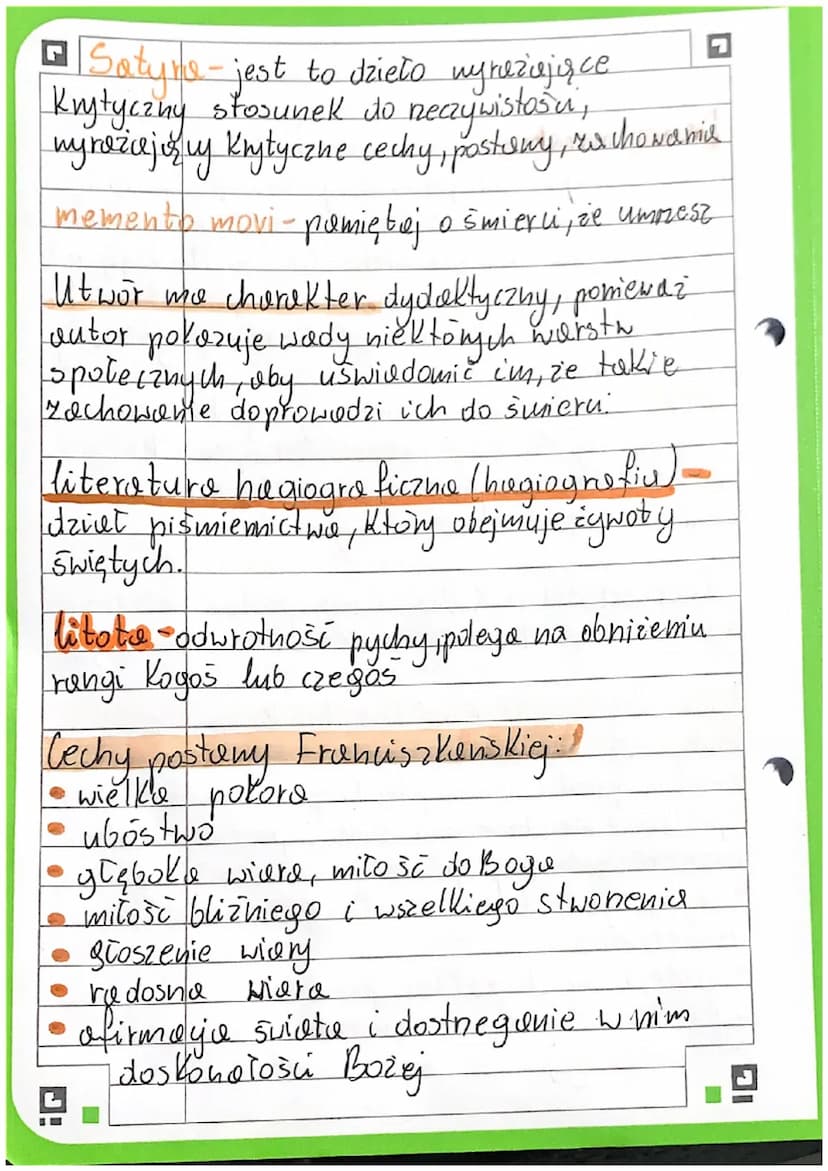 Satyra - jest to dzieło wyrażające
krytyczny stosunek do rzeczywistości,
wyrażający krytyczne cechy, postawy, zachowania
memento movi - pamiętaj o śmierci, że umrzesz
Utwór ma charakter dydaktyczny, ponieważ
autor pokazuje wady niektórych warstw
społecznych, aby uświadomić im, że takie
zachowanie doprowadzi ich do śmierci.
literatura hagiograficzna (hagiografia) -
dział piśmiennictwa, który obejmuje żywoty
świętych.
litota - odwrotność pychy, polega na obniżeniu
rangi kogoś lub czegoś
Cechy postawy Franciszkańskiej:
• wielka pokora
• ubóstwo
• głęboka wiara, miłość do Boga
• miłość bliźniego i wszelkiego stworzenia
• głoszenie wiary
• radosna wiara
• afirmacja świata i dostrzeganie w nim
doskonałości Bożej